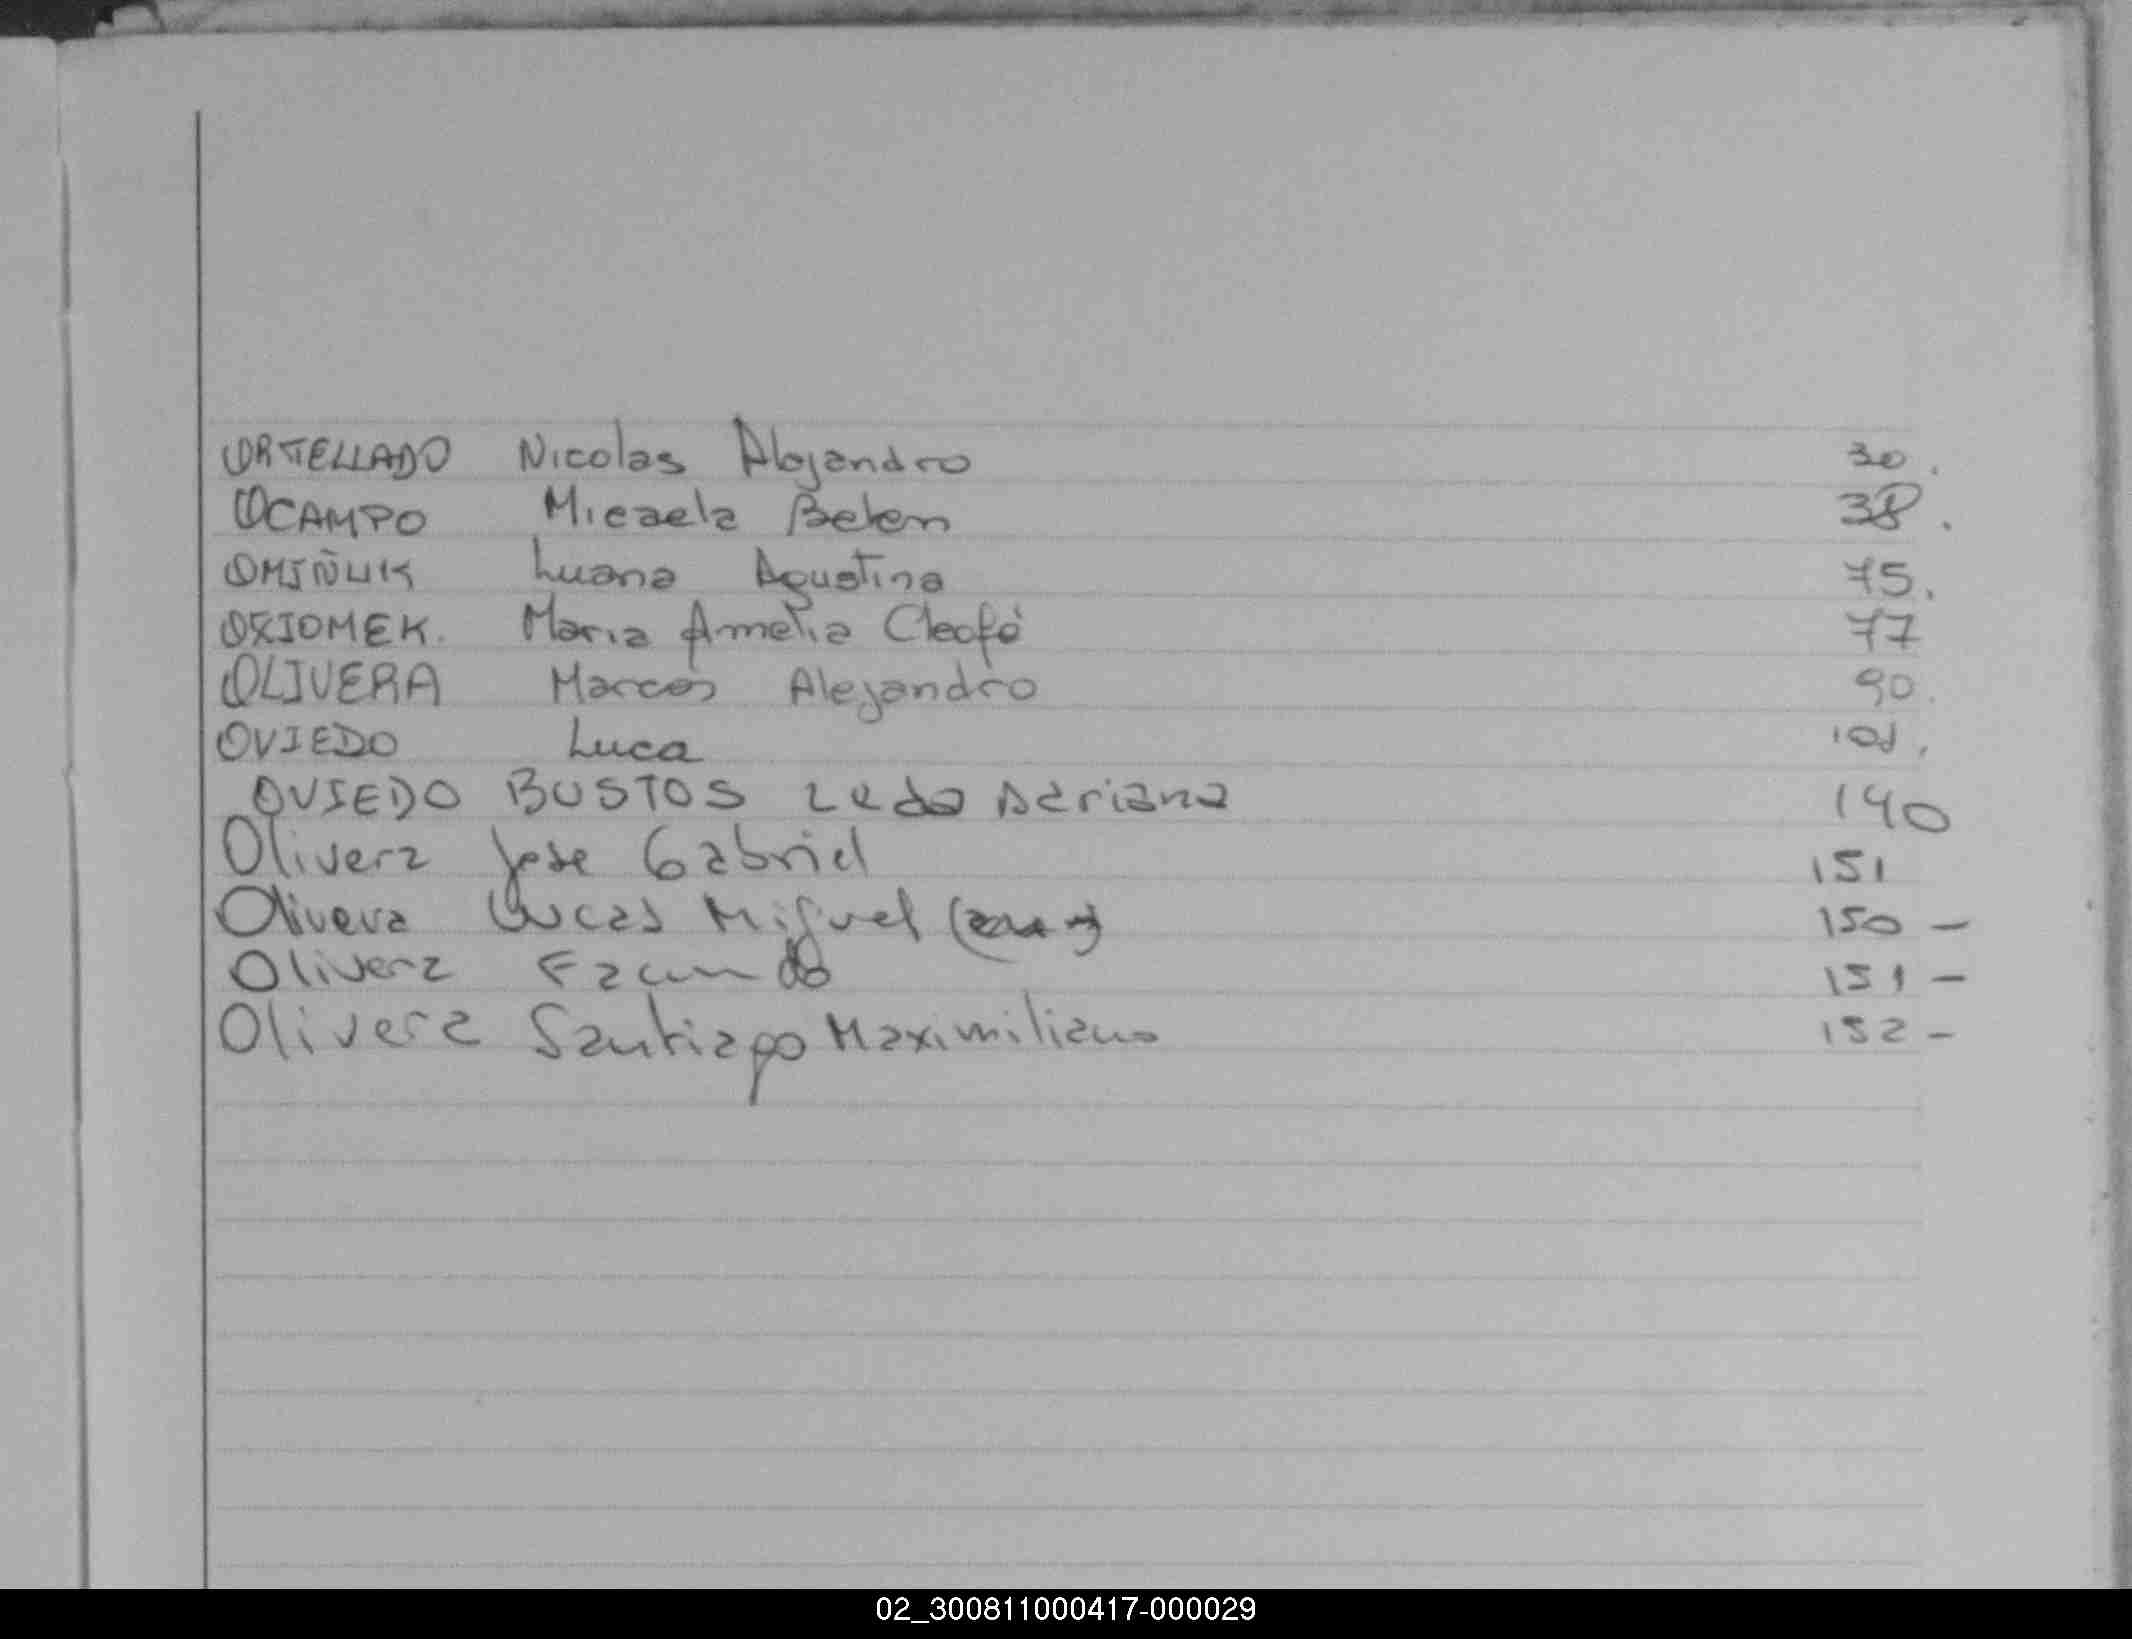 ORTELLADO Nicolas Alejandro 30.
OCAMPO Micaela Belen 38.
OMIÑUK Luana Agustina 75.
OXIOMEK. Maria Amelia Cleofé 77
OLIVERA Marcos Alejandro 90.
OVIEDO Luca 101.
OVIEDO BUSTOS Leda Adriana 140
Olivera Jose Gabriel 151
Olivera Lucas Miguel 150 -
Olivera Facundo 151 -
Olivera Santiago Maximiliano 152 -
02_300811000417-000029